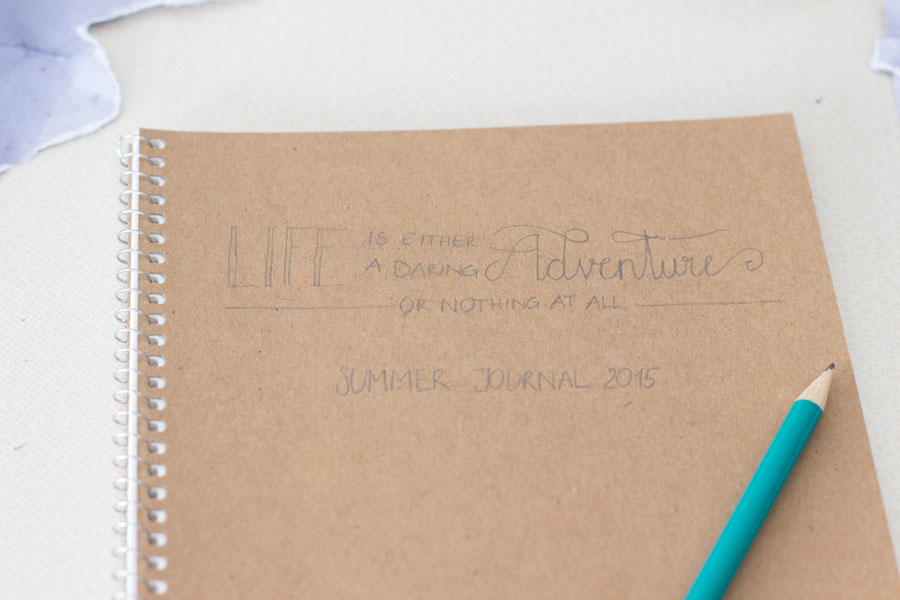 LIFE IS EITHER
A DARING Adventure
OR NOTHING AT ALL
SUMMER JOURNAL 2015